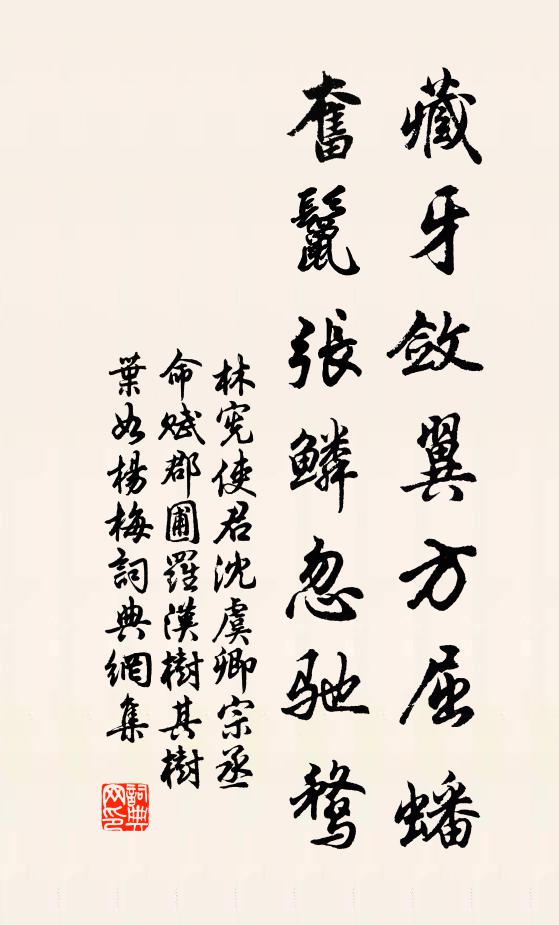 藏牙斂翼方屈蟠
奮鬣張鱗忽馳騖
林憲使君沈虞卿宗丞
命賦郡圃羅漢樹其樹
葉如楊梅詞典網集
詞典網印